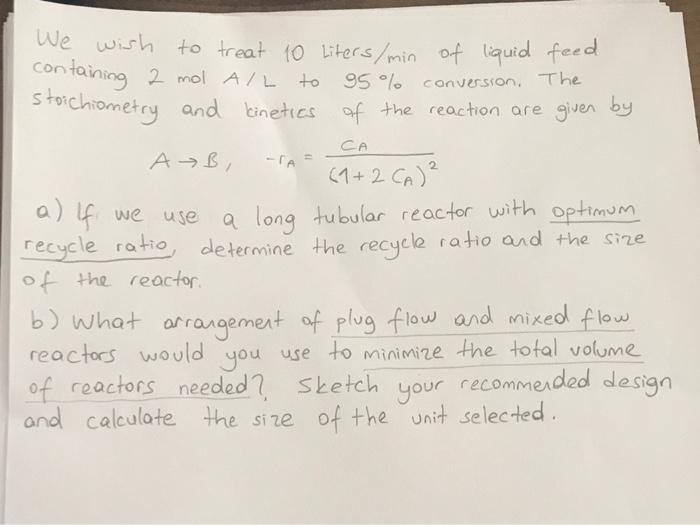 We wish to treat 10 Liters/min of liquid feed
containing 2 mol A/L to 95% conversion. The
stoichiometry and kinetics of the reaction are given by
A → B, -rA = CA / (1+2 CA)²
a) If we use a long tubular reactor with optimum
recycle ratio, determine the recycle ratio and the size
of the reactor.
b) What arrangement of plug flow and mixed flow
reactors would you use to minimize the total volume
of reactors needed? Sketch your recommended design
and calculate the size of the unit selected.